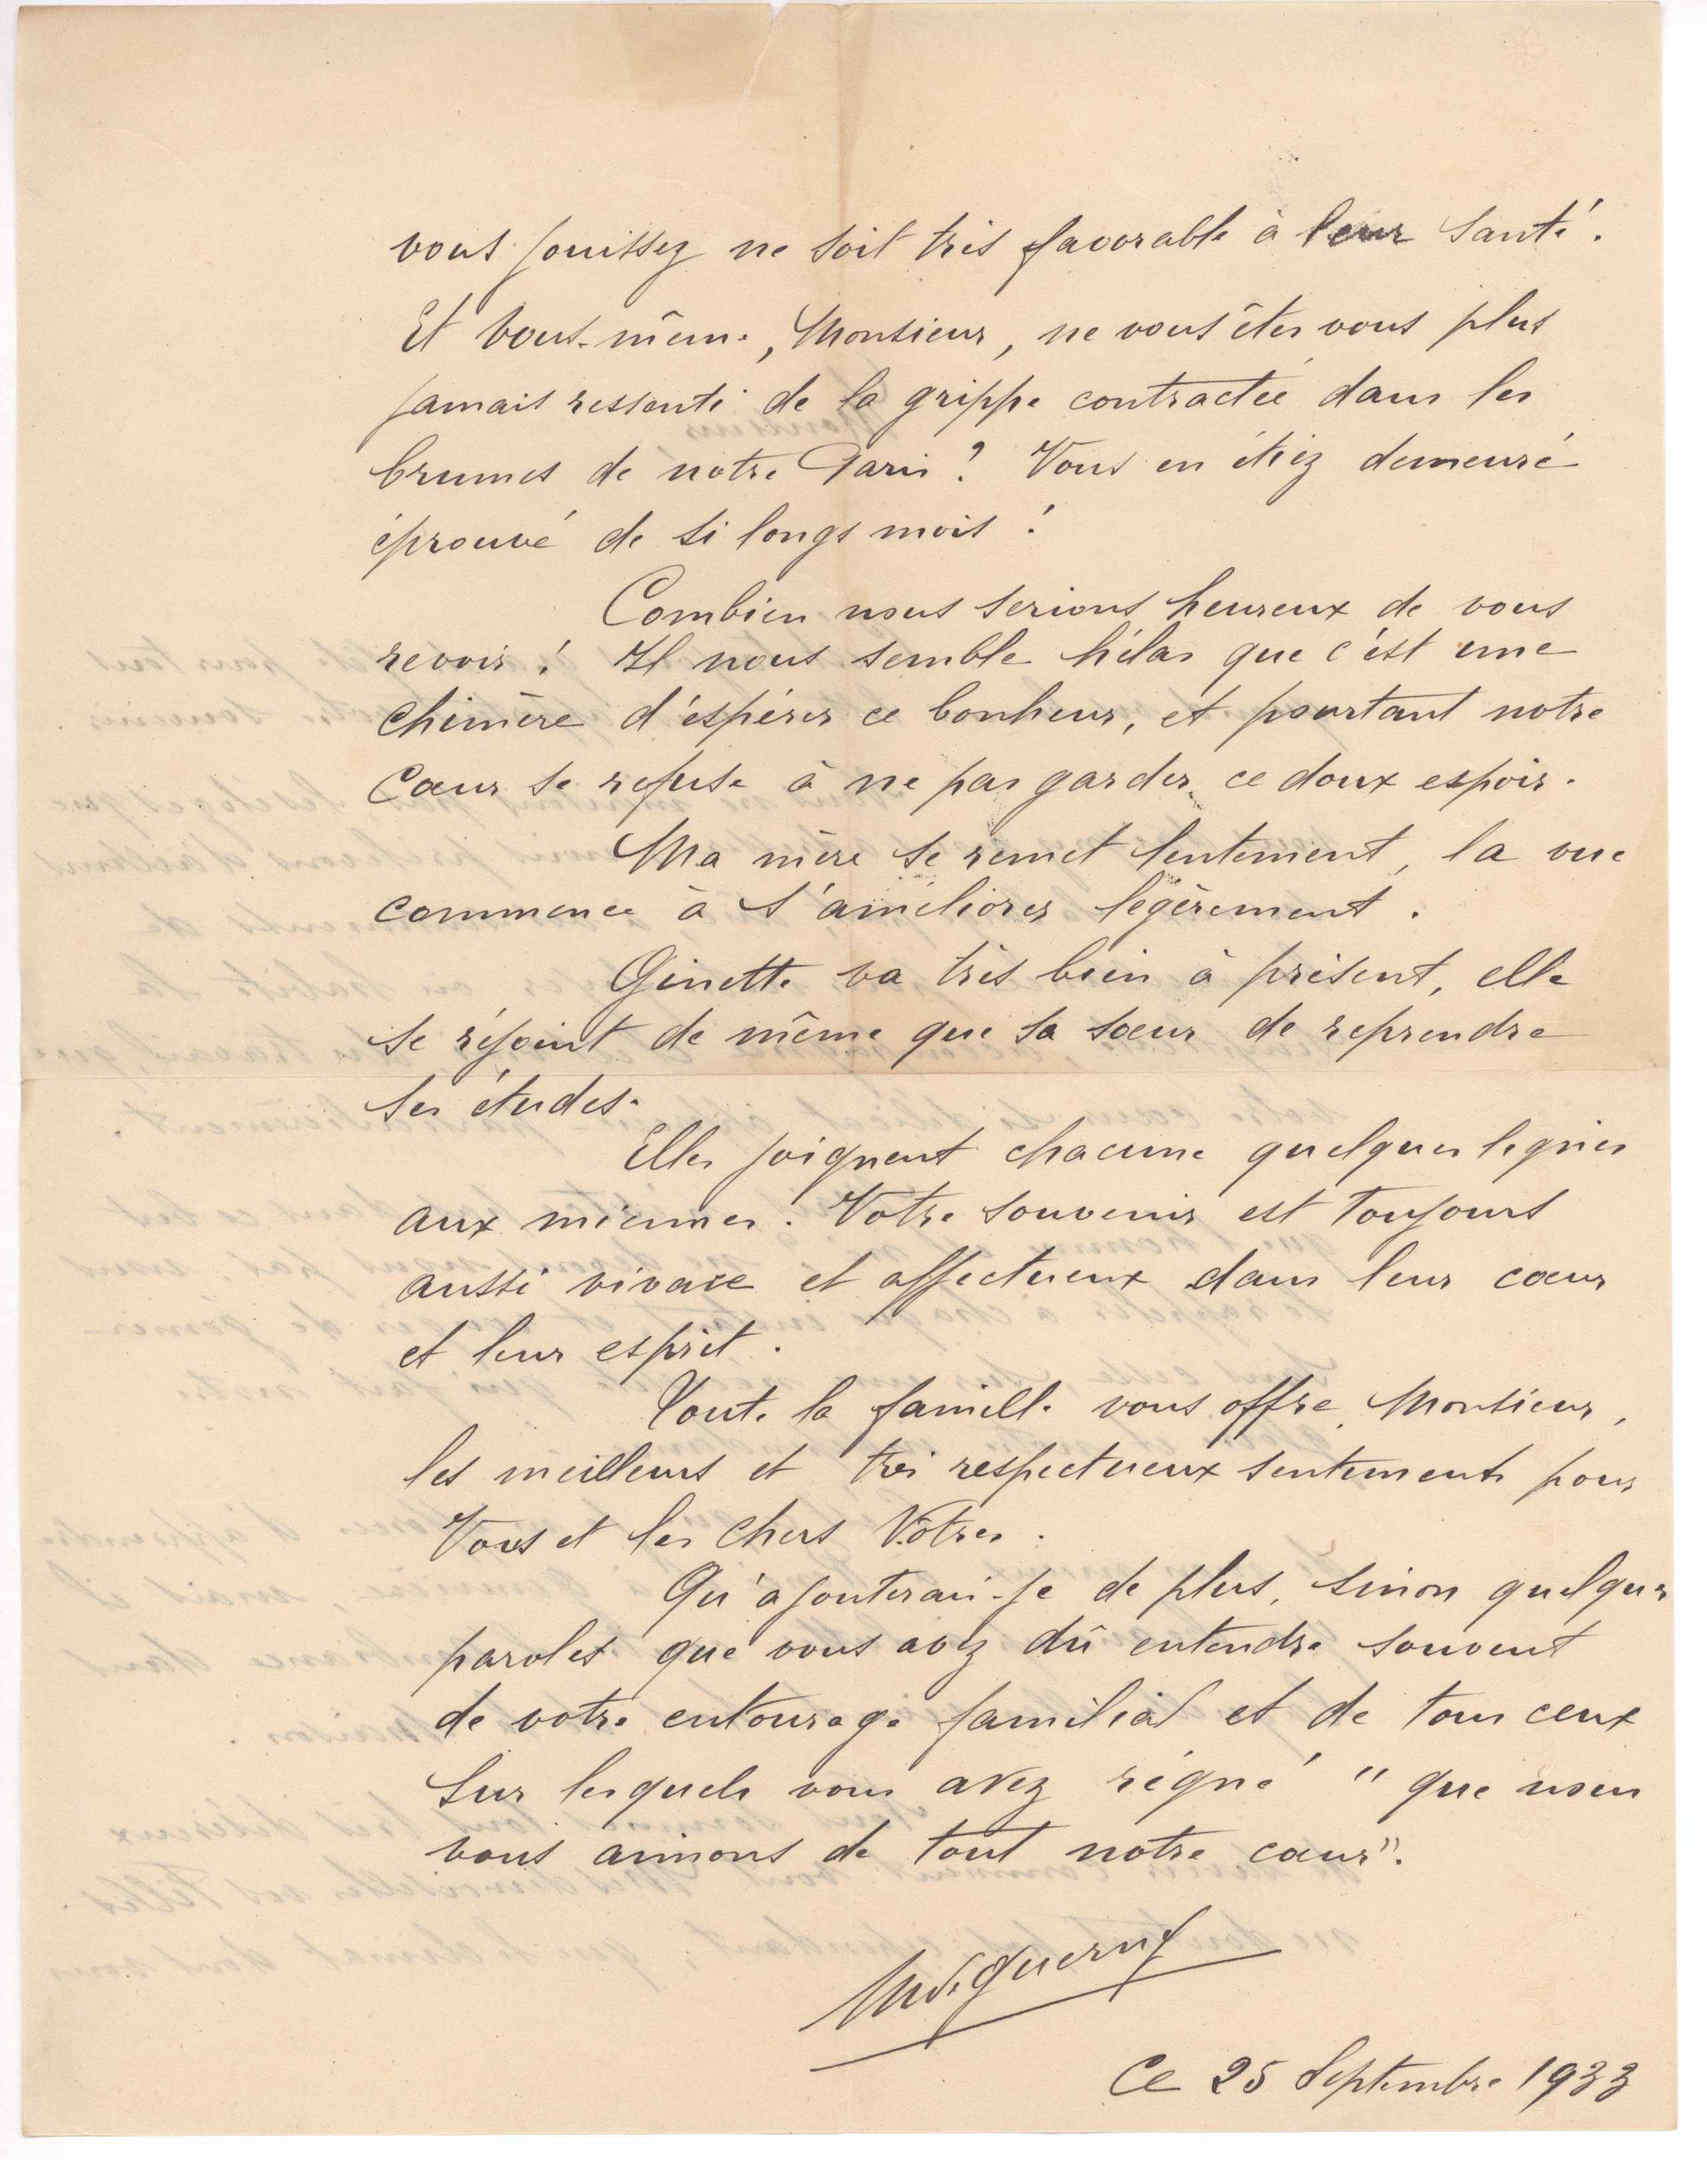 vous jouissez ne soit très favorable à leur santé.
Et vous-même, Monsieur, ne vous êtes vous plus
jamais ressenti de la grippe contractée dans les
brumes de notre Paris ? Vous en étiez demeuré
éprouvé de si longs mois !
Combien nous serions heureux de vous
revoir ! Il nous semble hélas que c'est une
chimère d'espérer ce bonheur, et pourtant notre
cœur se refuse à ne pas garder ce doux espoir.
Ma mère se remet lentement, la vue
commence à s'améliorer légèrement.
Ginette va très bien à présent, elle
se réjouit de même que sa sœur de reprendre
ses études.
Elles joignent chacune quelques lignes
aux miennes. Votre souvenir est toujours
aussi vivace et affectueux dans leur cœur
et leur esprit.
Toute la famille vous offre, Monsieur,
les meilleurs et très respectueux sentiments pour
Vous et les chers Vôtres.
Qu'ajouterai-je de plus, sinon quelques
paroles que vous avez dû entendre souvent
de votre entourage familial et de tous ceux
sur lesquels vous avez régné "que nous
vous aimons de tout notre cœur".
Ce 25 Septembre 1933